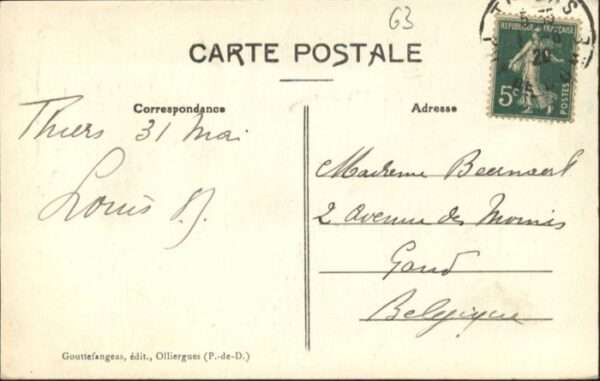 63
CARTE POSTALE
RÉPUBLIQUE FRANÇAISE
5c
POSTES
Correspondance
Adresse
Thiers 31 Mai
Louis
Madame Beernaert
2 Avenue des Moines
Gand
Belgique
Gouttefangeas, édit., Olliergues (P.-de-D.)